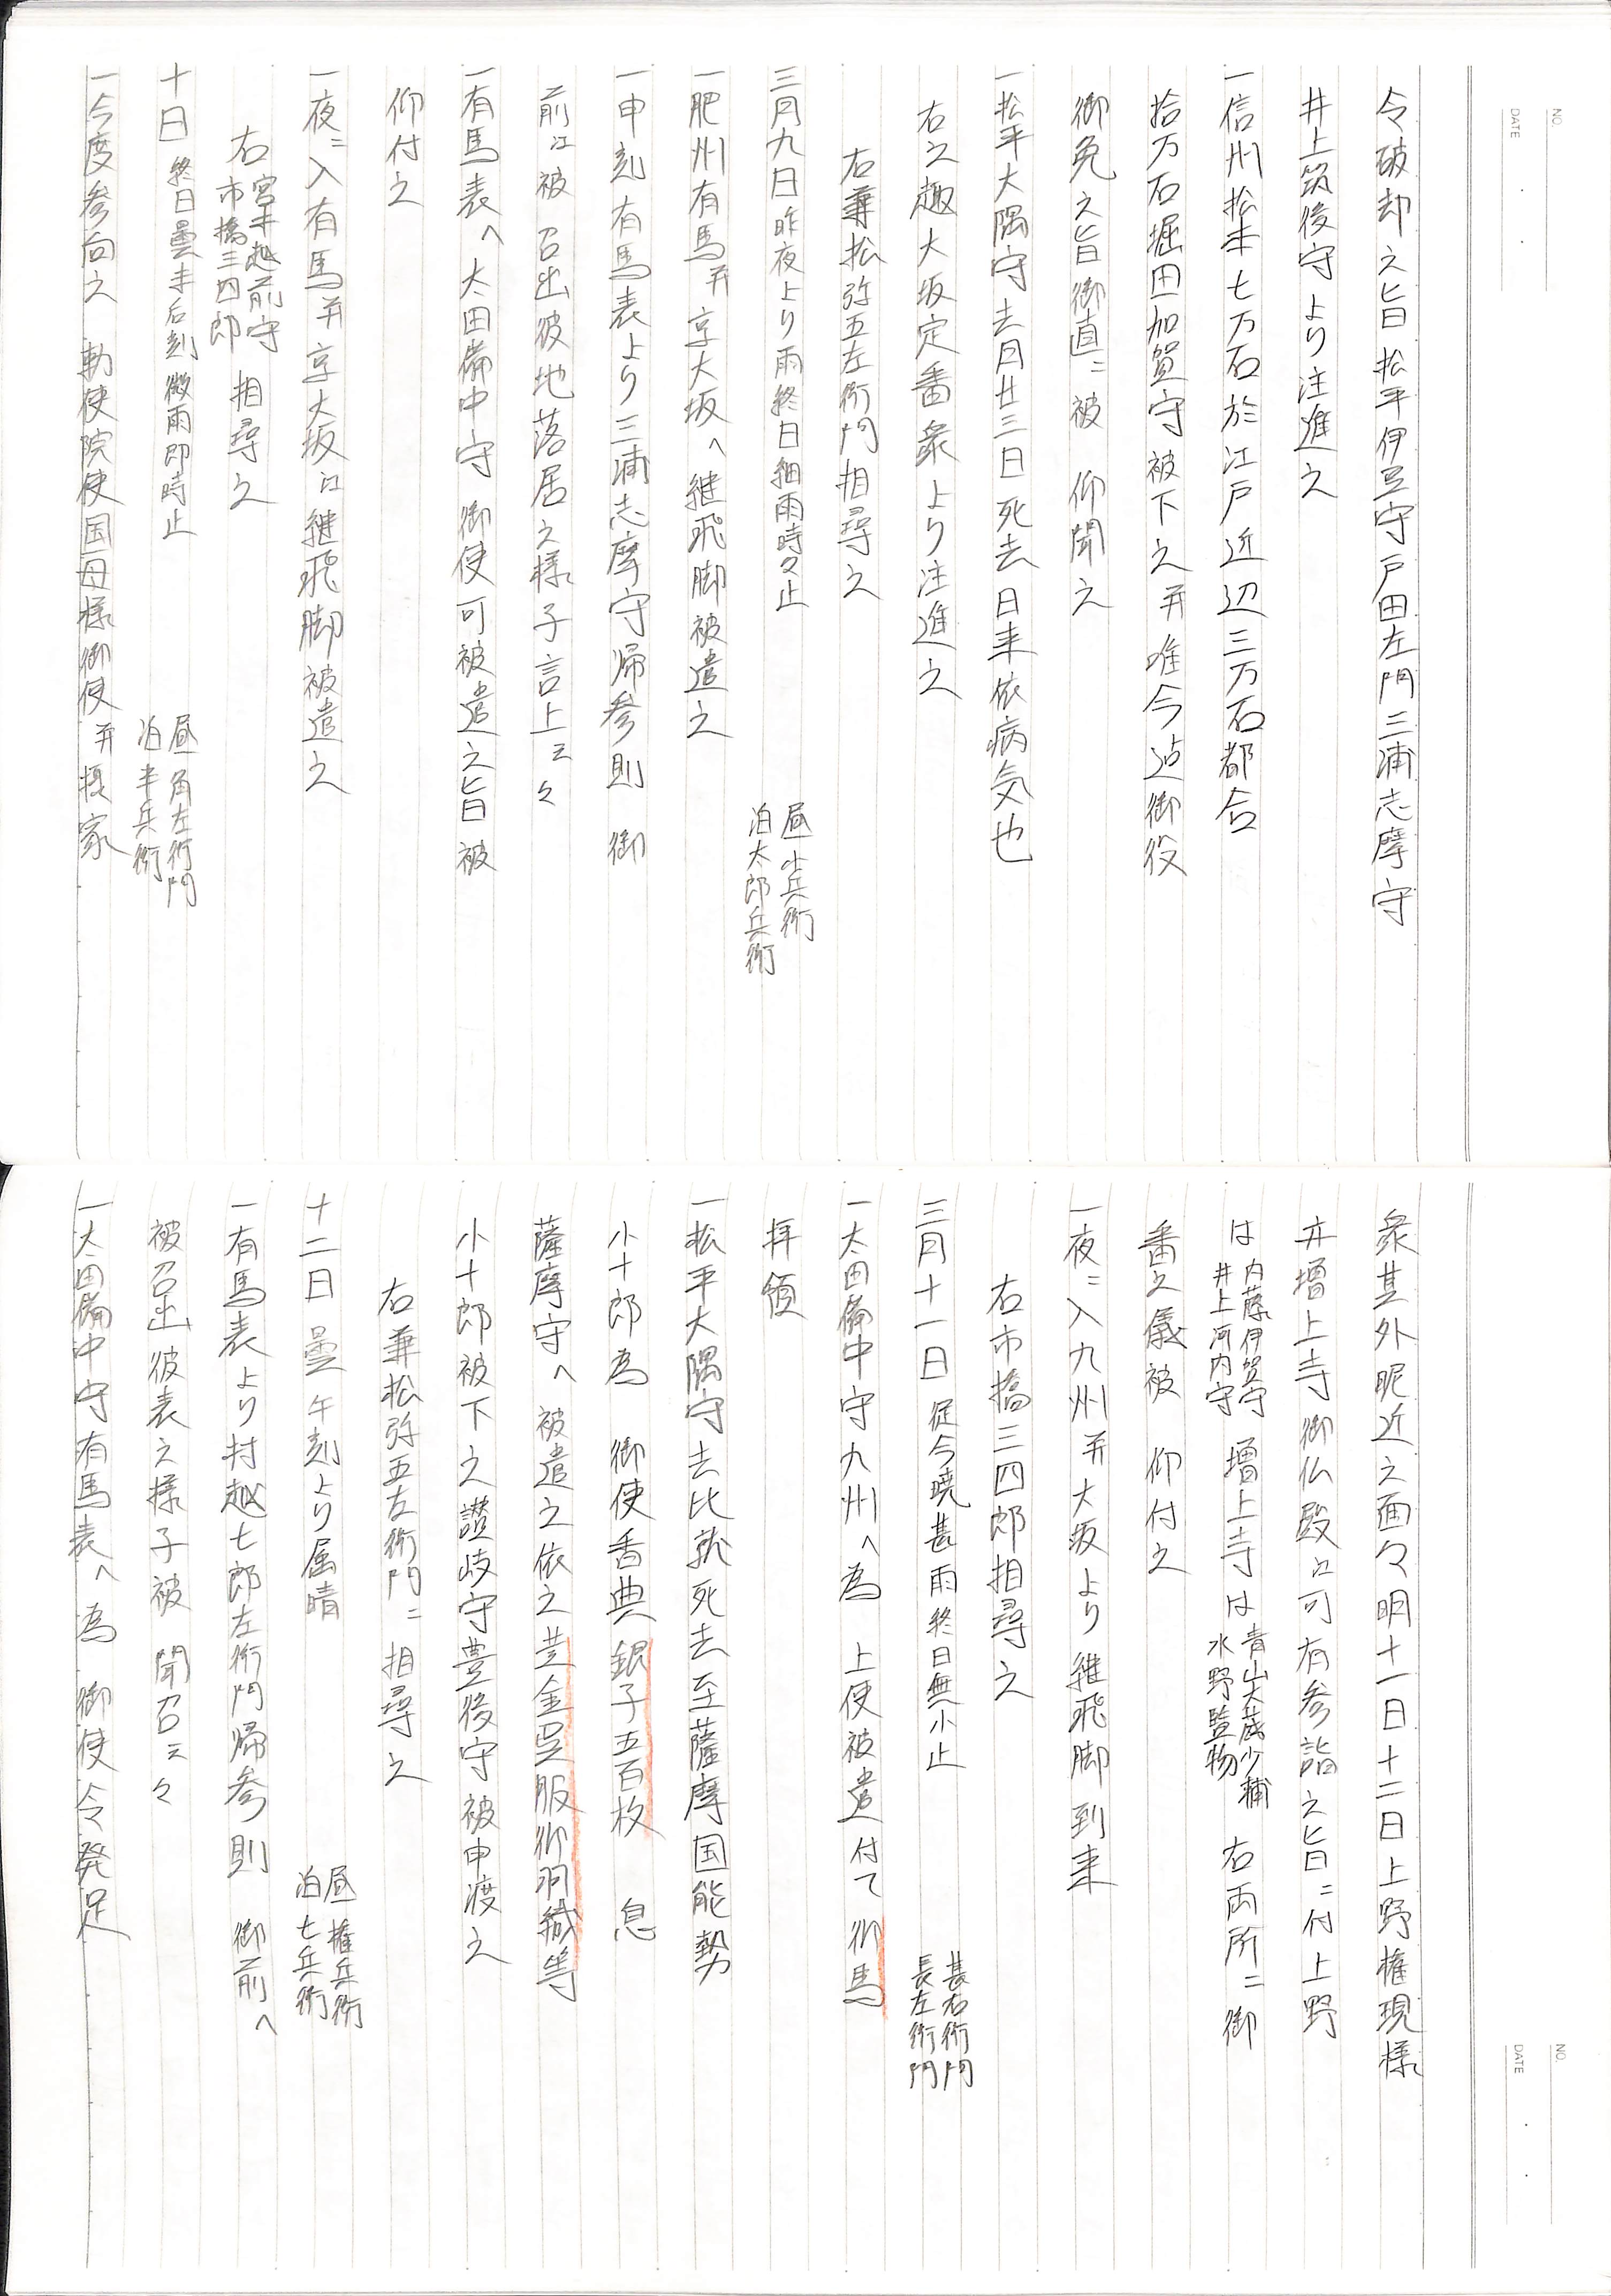 NO.
DATE
令破却之旨松平伊豆守戸田左門三浦志摩守
井上筑後守より注進之
一信州松本七万石於江戸近辺三万石都合
拾万石堀田加賀守被下之并唯今迠御役
御免之旨御直ニ被 仰聞之
一松平大隅守去月廿三日死去日来依病気也
右之趣大坂定番衆より注進之
右兼松弥五左衛門相尋之
三月九日 昨夜より雨終日細雨時々止 昼 小兵衛
泊 太郎兵衛
一肥州有馬并京大坂へ継飛脚被遣之
一申刻有馬表より三浦志摩守帰参則 御
前江被 召出彼地落居之様子言上云々
一有馬表へ太田備中守 御使可被遣之旨被
仰付之
一夜ニ入有馬并京大坂江継飛脚被遣之
右 宮本越前守
市橋三四郎 相尋之
十日 終日曇未后刻微雨即時止 昼 角左衛門
泊 半兵衛
一今度参向之 勅使院使国母様御使并摂家
NO.
DATE
衆其外昵近之面々明十一日十二日上野権現様
并増上寺御仏殿江可有参詣之旨ニ付上野
は 内藤伊賀守
井上河内守 増上寺は 青山大蔵少輔
水野監物 右両所ニ御
番之儀被 仰付之
一夜ニ入九州并大坂より継飛脚到来
右市橋三四郎相尋之
三月十一日 従今暁甚雨終日無小止 甚右衛門
長左衛門
一太田備中守九州へ為 上使被遣付て御馬
拝領
一松平大隅守去比就死去至薩摩国能勢
小十郎為 御使香典銀子五百枚 息
薩摩守へ被遣之依之黄金呉服御羽織等
小十郎被下之讃岐守豊後守被申渡之
右兼松弥五左衛門ニ相尋之
十二日 曇午刻より属晴 昼 権兵衛
泊 七兵衛
一有馬表より村越七郎左衛門帰参則 御前へ
被召出彼表之様子被 聞召云々
一太田備中守有馬表へ為 御使令発足